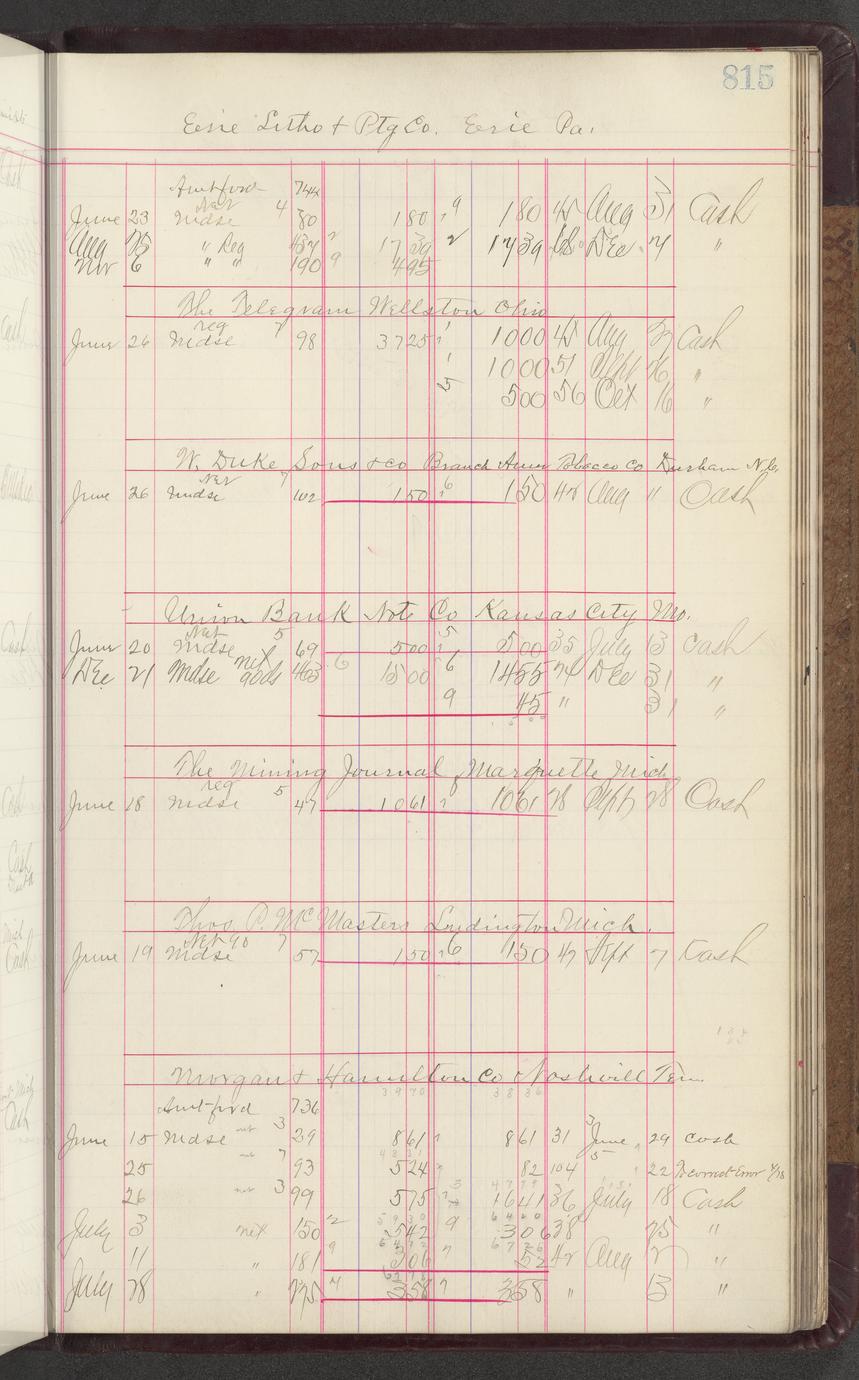 815
Eerie Litho & Ptg Co. Eerie Pa.
Amt ford 744
June 23 Mdse Net 4 80 180 9 180 45 Aug 31 Cash
Aug 25 " Reg 437 2 1739 2 1739 68 Dec 7 "
Nov 6 " " 190 9 495
The Telegram Wellston Ohio
June 26 Mdse reg 7 98 3725 1 1000 45 Aug Cash
1 1000 51 Sept 26 "
5 500 56 Oct 16 "
W. Duke, Sons & co Branch Amer Tobacco Co Durham N.C.
June 26 Mdse Net 7 102 150 6 150 42 Aug " Cash
Union Bank Note Co Kansas City Mo.
June 20 Mdse Net 5 69 500 5 500 35 July 13 Cash
Dec 21 Mdse net 463 6 1500 6 1455 74 Dec 31 "
9 45 " 31 "
The Mining Journal, Marquette Mich
June 18 Mdse reg 5 47 1061 1061 Sept 28 Cash
Thos. P. McMasters Ludington Mich.
June 19 Mdse Net 90 7 57 150 6 150 47 Sept 7 Cash
Morgan & Hamilton Co Nashvill Ten.
3970 3836
Amt ford 736
June 15 Mdse net 3 29 861 861 31 June 29 Cash
25 net 7 93 524 82 104 22 To correct Error
26 net 3 99 575 1641 36 July 18 Cash
July 3 net 150 2 542 9 306 38 25 "
11 " 181 9 306 7 52 42 Aug 2 "
July 28 " 275 358 358 " 13 "